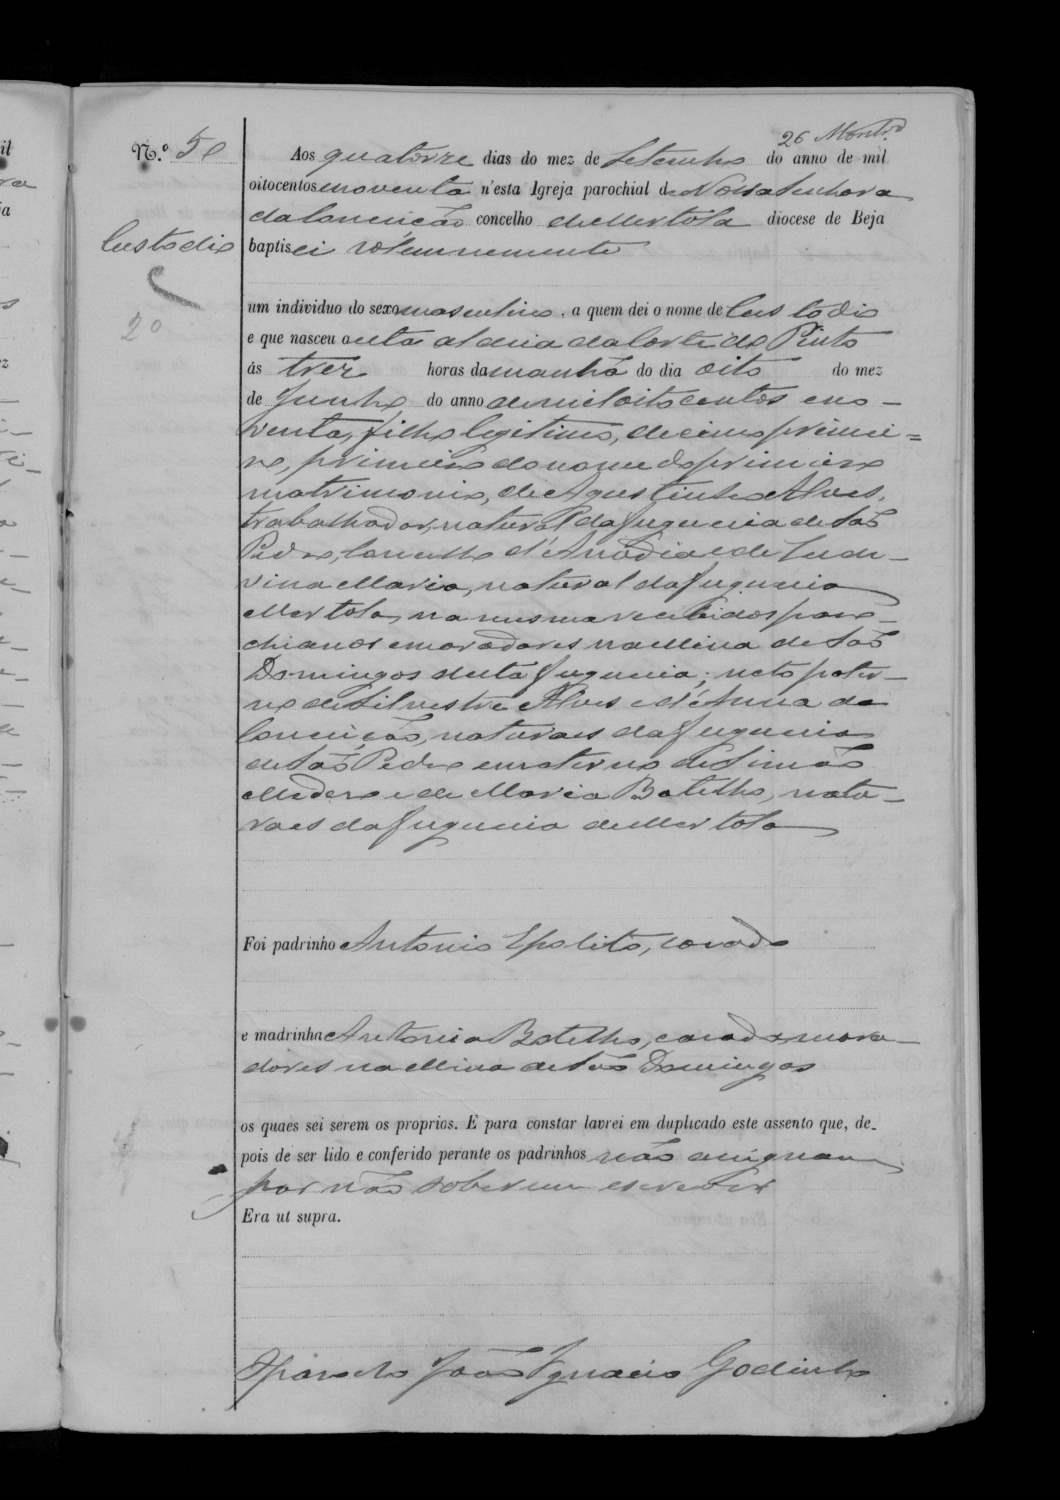 26
N.º 50
Aos quatorze dias do mez de Setembro do anno de mil
oitocentos e noventa n'esta Igreja parochial de Nossa Senhora
da Conceição concelho de Mertola diocese de Beja
Custodio
baptisei solemnemente
um individuo do sexo masculino, a quem dei o nome de Custodio
20
e que nasceu n'esta aldeia da Corte do Pinto
ás tres horas da manhã do dia oito do mez
de Junho do anno de mil oito centos e no-
venta, filho legitimo, decimo primei-
ro, primeiro do nome do primeiro
matrimonio, de Agustinho Alves,
trabalhador, natural da freguezia de São
Pedro, Concelho d'
vina Maria, natural da freguezia
Mertola, na mesma recebidos paro-
chianos e moradores na Mina de São
Domingos desta freguezia; neto pater-
no de Silvestre Alves e d'Anna da
Conceição, naturaes da freguezia
de São Pedro e materno de Simão
Medero e de Maria Botelho, natu-
raes da freguezia de Mertola
Foi padrinho Antonio Ipolito, casado
e madrinha Antonia Botelho, casada mora-
dores na Mina de São Domingos
os quaes sei serem os proprios. E para constar lavrei em duplicado este assento que, de-
pois de ser lido e conferido perante os padrinhos não assignam
por não soberem escrever
Era ut supra.
O Parocho João Ignacio Godinho